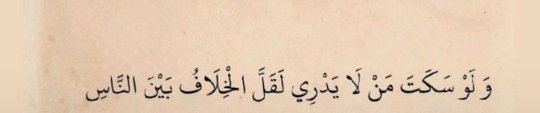 وَ لَوْ سَكَتَ مَنْ لَا يَدْرِي لَقَلَّ الْخِلَافُ بَيْنَ النَّاسِ